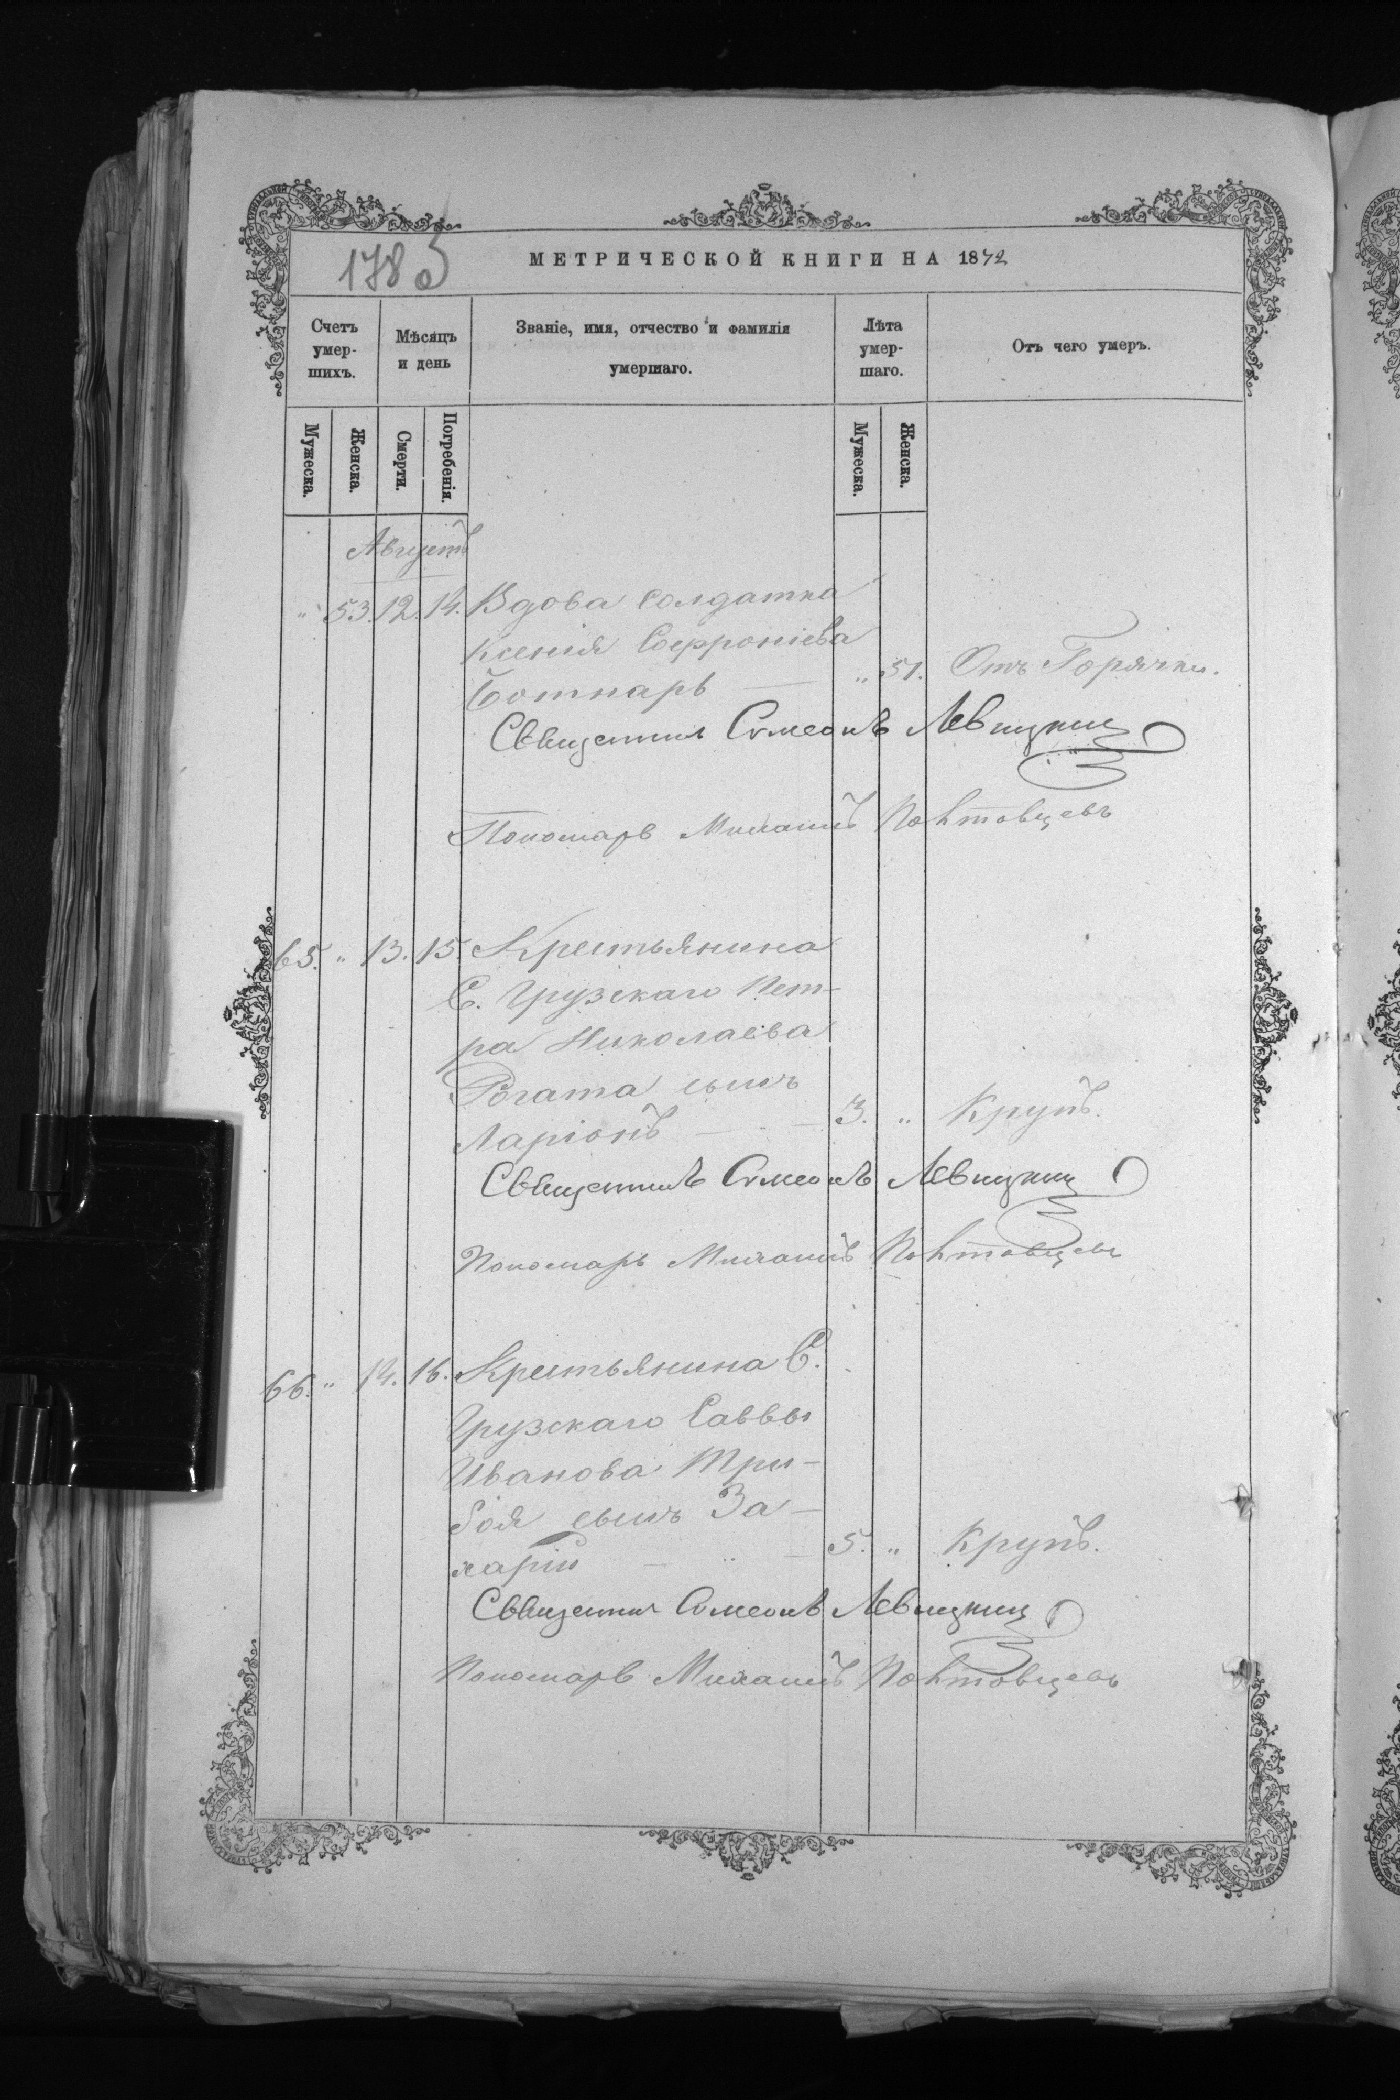 178 об
МЕТРИЧЕСКОЙ КНИГИ НА 1872
Счетъ умер-шихъ.
Мѣсяцъ и день
Званіе, имя, отчество и фамилія умершаго.
Лѣта умер-шаго.
Отъ чего умеръ.
Мужеска.
Женска.
Смерти.
Погребенія.
Мужеска.
Женска.
Августъ
" 53. 12. 14. Вдова солдатка
Ксенія Софроніева
Ботнарь — " 51. Отъ Горячки.
Священникъ Симеонъ Левицкий
Пономарь Михаилъ
65. " 13. 15. Крестьянина
С. Грузскаго Пет-
ра Николаева
Рогата сынъ
Ларіонъ — 3. " Крупъ.
Священникъ Симеонъ Левицкий
Пономарь Михаилъ
66. " 14. 16. Крестьянина С.
Грузскаго Саввы
Иванова Три-
боя сынъ За-
харій — " — 5. " Крупъ.
Священникъ Симеонъ Левицкий
Пономарь Михаилъ